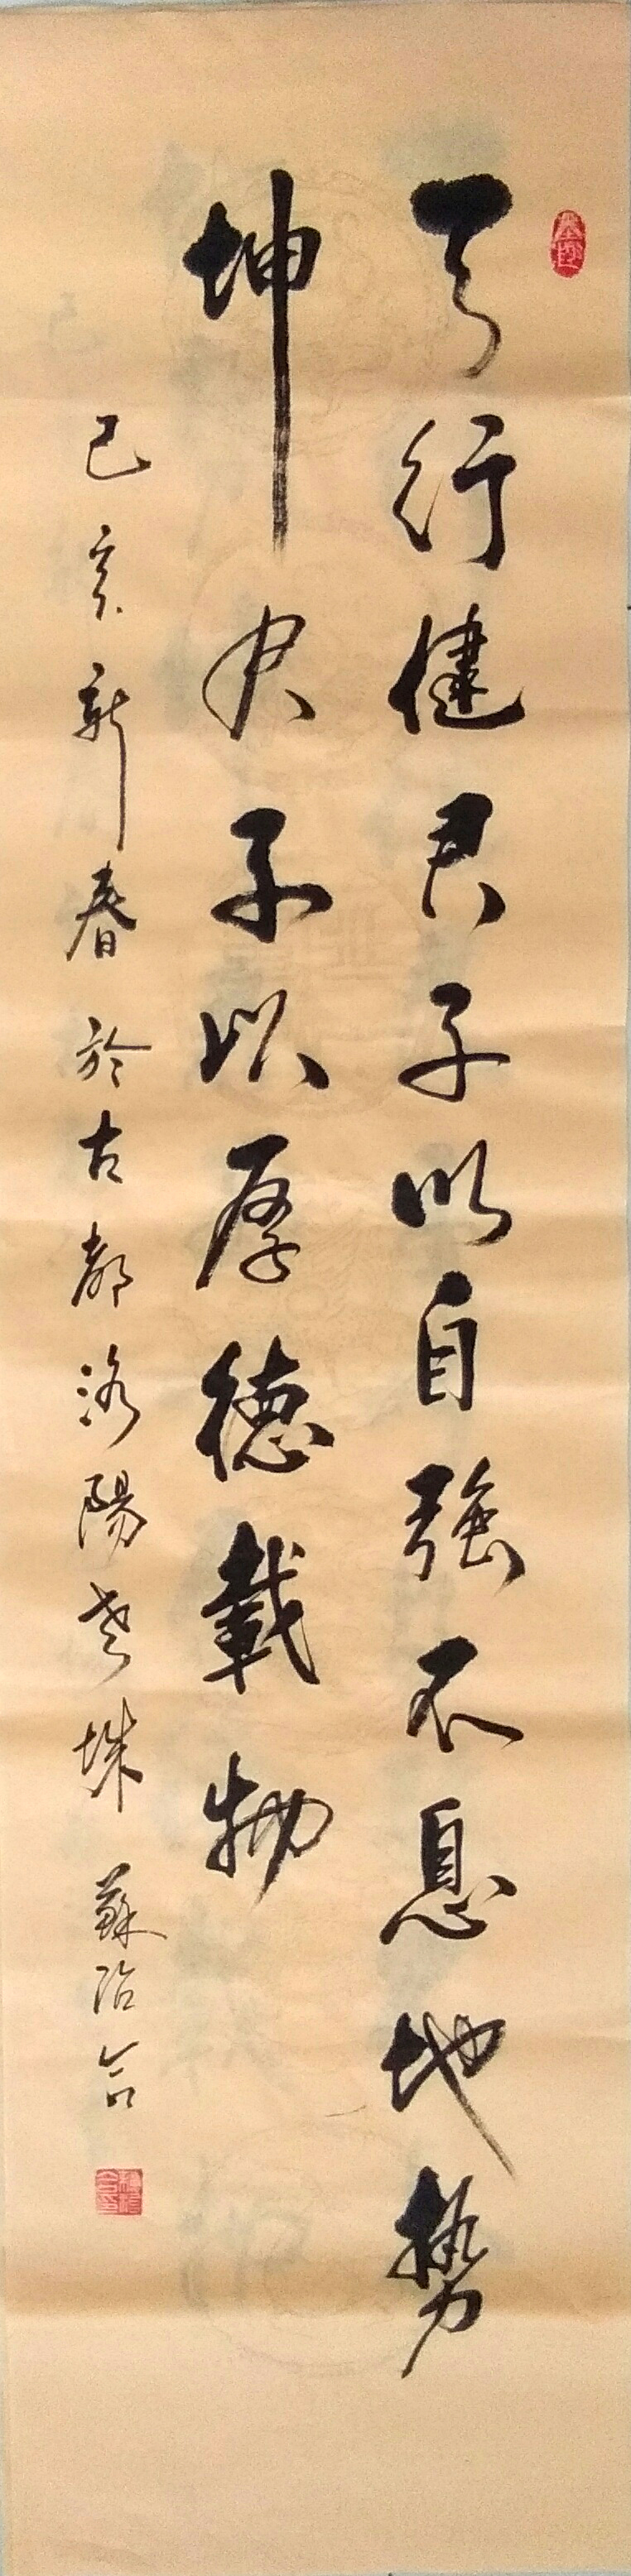 天行健君子以自強不息地勢
坤君子以厚德載物
己亥新春於古都洛陽老城蘇治合